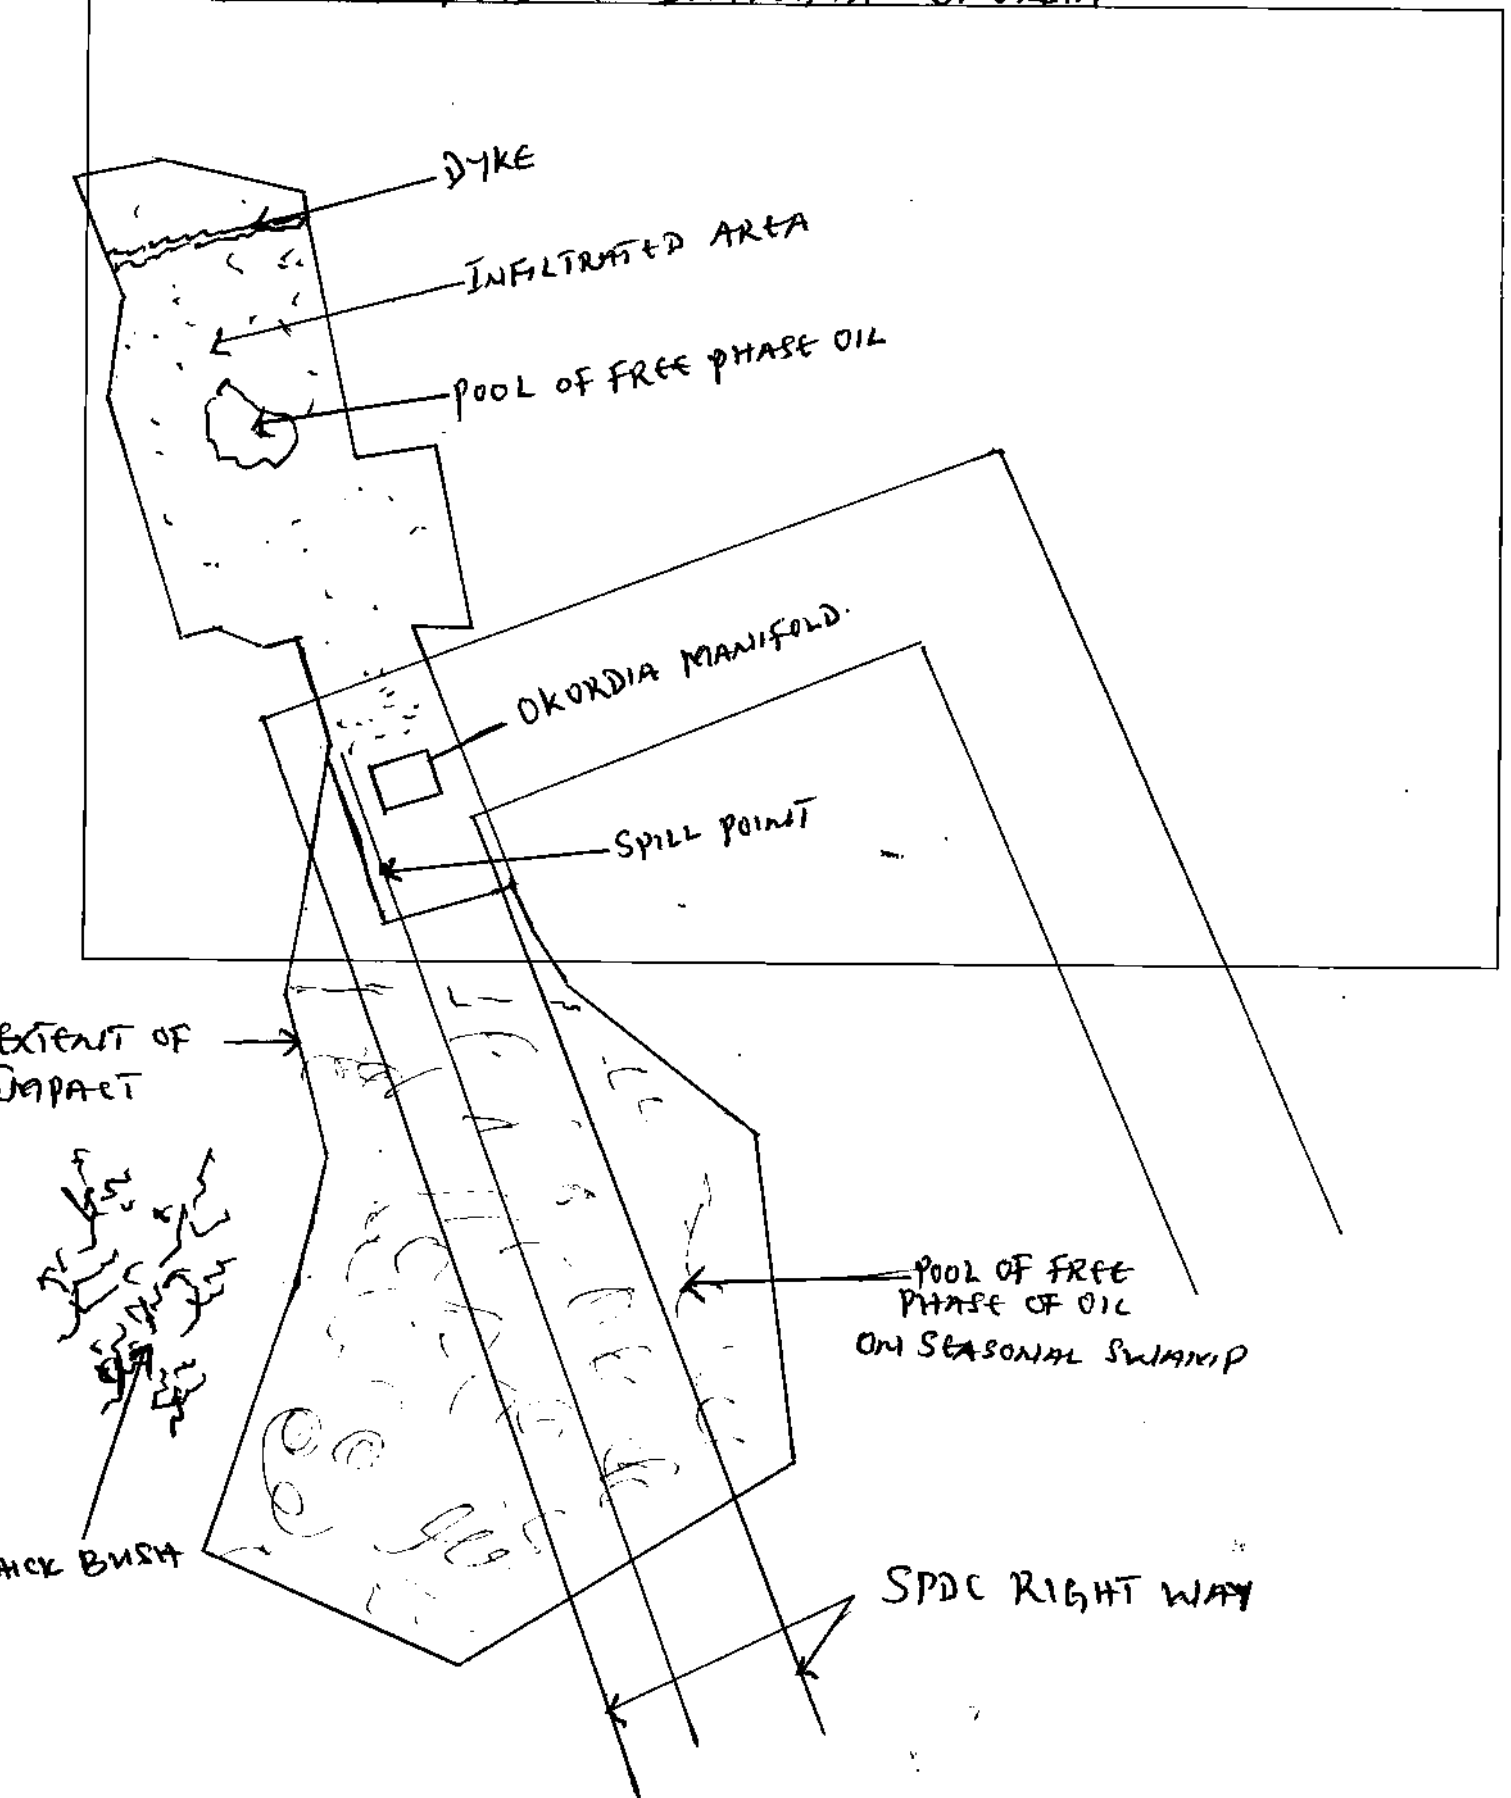 DYKE
INFILTRATED AREA
POOL OF FREE PHASE OIL
OKORDIA MANIFOLD.
SPILL POINT
EXTENT OF
IMPACT
POOL OF FREE
PHASE OF OIL
ON SEASONAL SWAMP
BUSH
SPDC RIGHT WAY